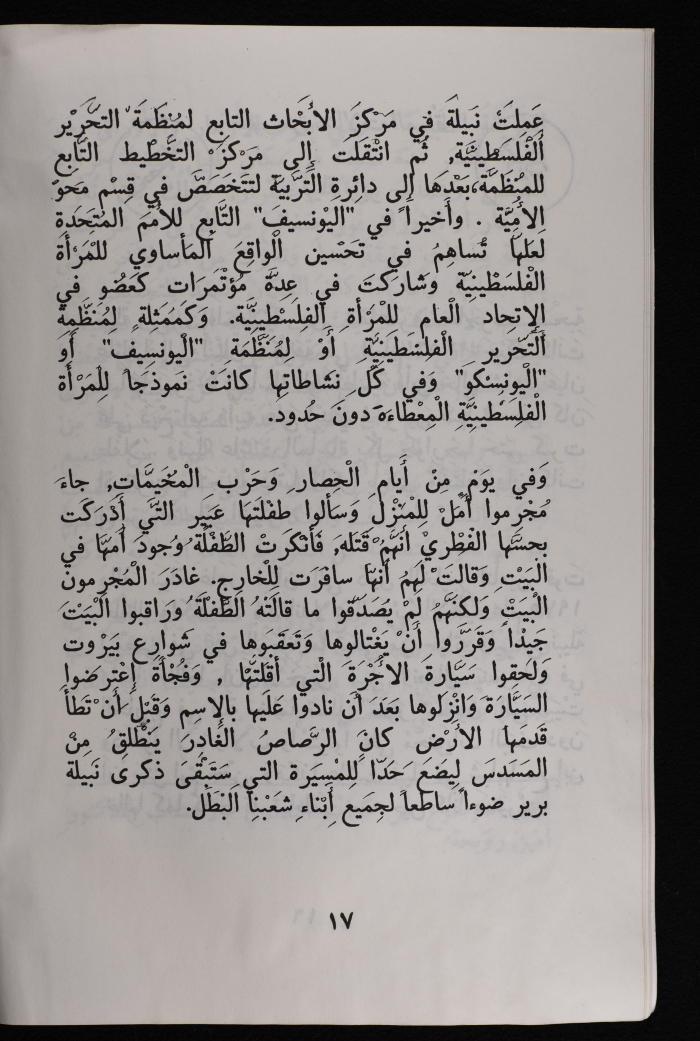 عَمِلَتْ نَبيلَة في مَرْكَزَ الأَبْحاث التابِع لمُنَظَمةَ التَحْرَيْر
الْفَلَسطِينيَّة, ثُم انْتَقلَتَ إلى مَرْكَزَ التَخْطْيط التَّابع
للمُنظَمَّة،بَعْدَها إلى دائِرةِ التَّرْبيَة لتتَخَصَصَّ في قِسْم مَحَوّ
الأُمِيَّة . وأخيراً في "اليُونسيفَ" التَّابِع للأُمَمَ المُتَحَدة
لعَلَهّا تُساهِمُ في تحَسْين الْواقِعَ المَأساوي للمَرْأة
الْفَلَسْطينِيّة وشارَكتَ في عِدةَّ مؤْتمَرَات كعَضُو في
الإتِحاد الْعام للْمَرْأة الفِلَسْطِينيَّة. وَكَمُمَثِلة لِمُنَظَّمِة
التَحّرير الْفلِسْطَينِيَّة أَوْ لِمُنَظَّمَة "الْيونِسِيف" أَو
"الْيونسكو" وَفي كُلّ نشاطاتِها كانَتْ نَموذَجَاً للْمَرْأة
الْفلِسْطينِيَّةِ الْمِعْطاءه دونَ حُدود.
وَفي يوَم مِنْ أَيام الْحِصار وَحَرْب الْمُخَيمَّات, جاءَ
مُجْرِموا أمَلْ للِمْنْزلَ وَسَألوا طفْلَتَها عَبير التَّي أدْرَكَت
بحسَّها الفْطْريْ أنهَّمُ قَتَله, فأنْكَرتْ الطَّفْلَةُ وُجودَ أمَهَّا في
البَيْت وَقالتَ لَهمُ أنهّا سافَرَت للْخارج. غادَرَ الْمُجْرمونَ
الْبَيَتْ وَلكنَهَّمُ لَمْ يُصدَقّوا ما قالَتْهُ الطَّفْلَةُ وَراقبوا الْبَيْتَ
جَيدْاً وَقَررَّوا أَنْ يَغْتالوها وَتَعَقبَوها في شَوارِع بيَرْوت
وَلحَقوا سَيَّارة الأُجْرَة الْتي أقَلتَّها , وَفُجْأة إعْترضَوا
السَيَّارَة وَانْزلَوها بعَدَ أن نادوا عَلَيها بالإسِم وَقَبْلَ أن ْتَطَأ
قدَمَها الأرْضْ كانَ الرَّصاصُ الغَادِرَ يَنْطْلقُ مِنْ
المسَدسَ لِيضَعَ حَدّا للْمْسَيرة التي سَتَبقَىْ ذكرى نَبيلة
برير ضوءاً ساطعاً لجِميَع أَبْناء شَعَبْنا البَطَلْ.
١٧